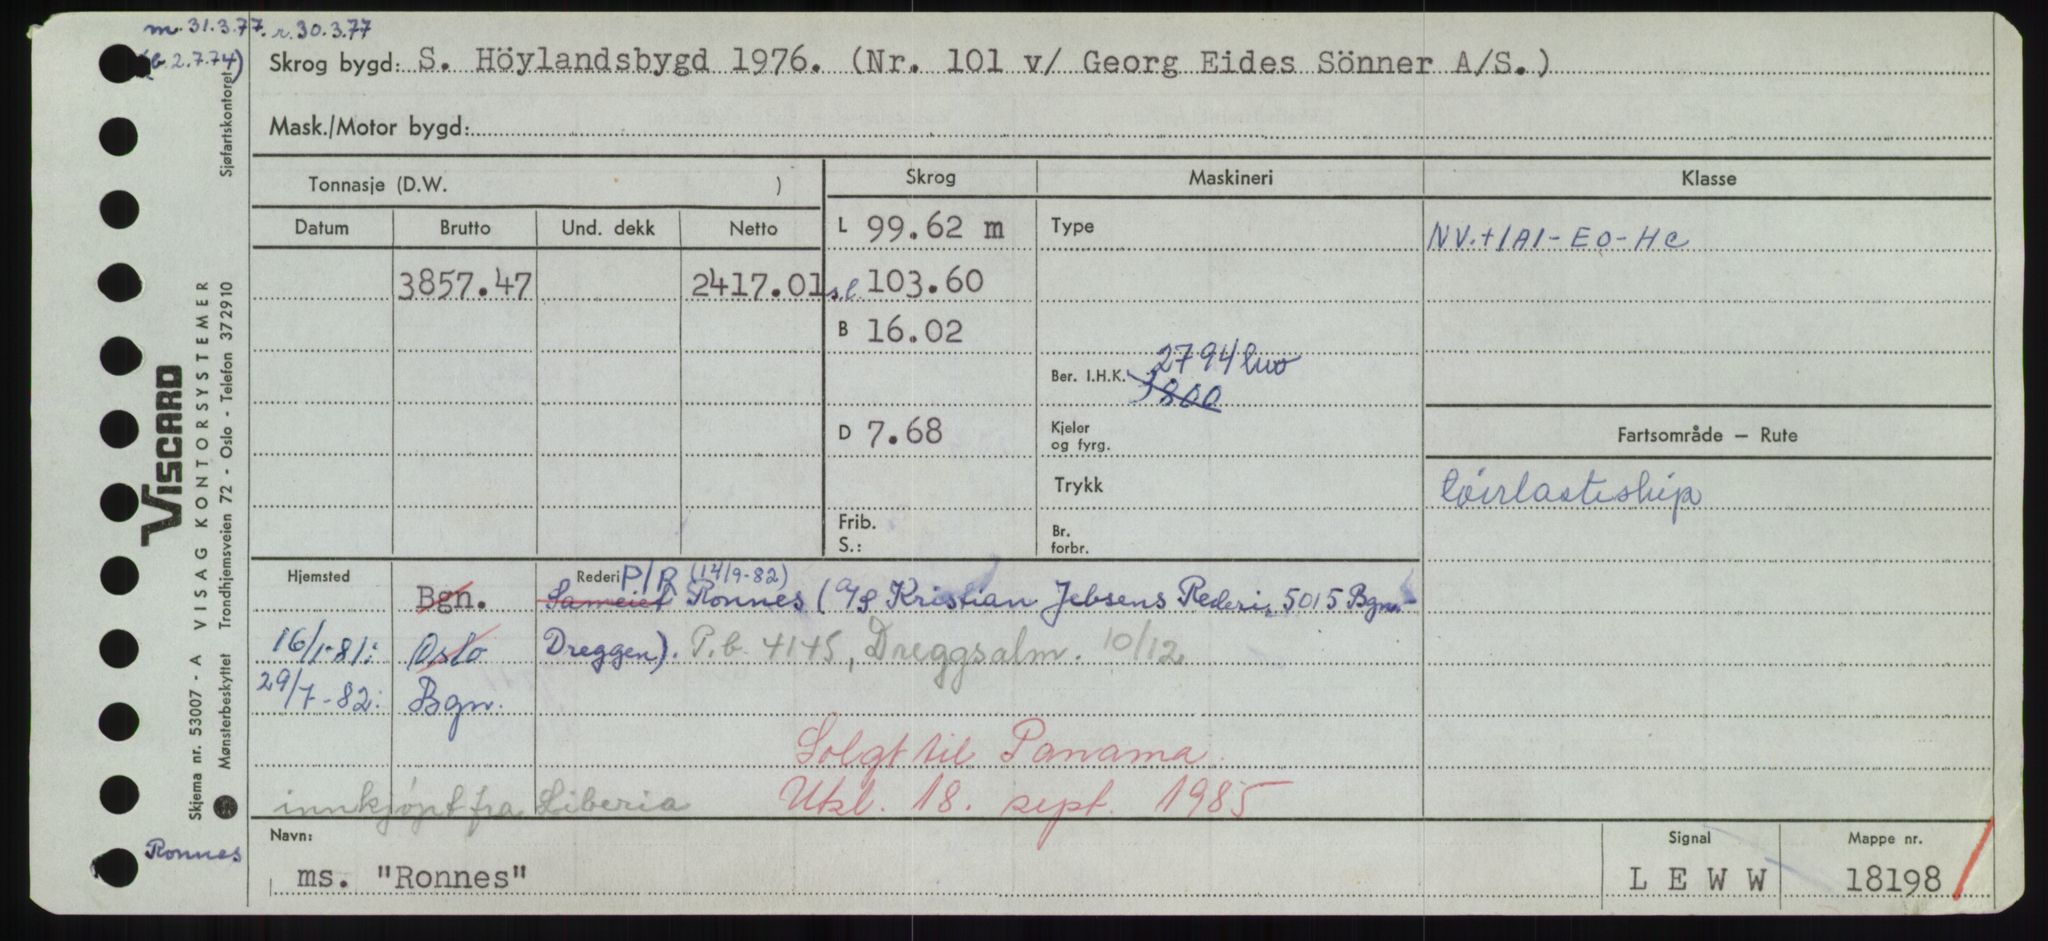 m. 31.3.77. r. 30.3.77
(b 2.7.74)
Skrog bygd: S. Höylandsbygd 1976. (Nr. 101 v/ Georg Eides Sönner A/S.)
Mask./Motor bygd:
Tonnasje (D.W. )
Skrog
Maskineri
Klasse
Datum Brutto Und. dekk Netto
L 99.62 m
Type
NV.+1A1-EO-HC
3857.47 2417.01
s.l. 103.60
B 16.02
Ber. I.H.K. 2794 kw
3800
D 7.68
Kjeler
og fyrg.
Fartsområde — Rute
Trykk
Frib.
S.:
Br.
forbr.
Hjemsted
Rederi P/R (14/9-82)
Bgn. Sameiet Ronnes (A/S Kristian Jebsens Rederi, 5015 Bgn.-
16/1-81: Oslo Dreggen). P.b. 4145, Dreggsalm. 10/12
29/7-82: Bgn.
Solgt til Panama.
innkjøpt fra Liberia Utsl. 18. sept. 1985
Navn:
ms. "Ronnes"
Signal
LEWW
Mappe nr.
18198
Ronnes
Skjema nr. 53007 - A VISAG KONTORSYSTEMER
Mønsterbeskyttet Trondhjemsveien 72 - Oslo - Telefon 37 29 10
VISCARD
Sjøfartskontoret